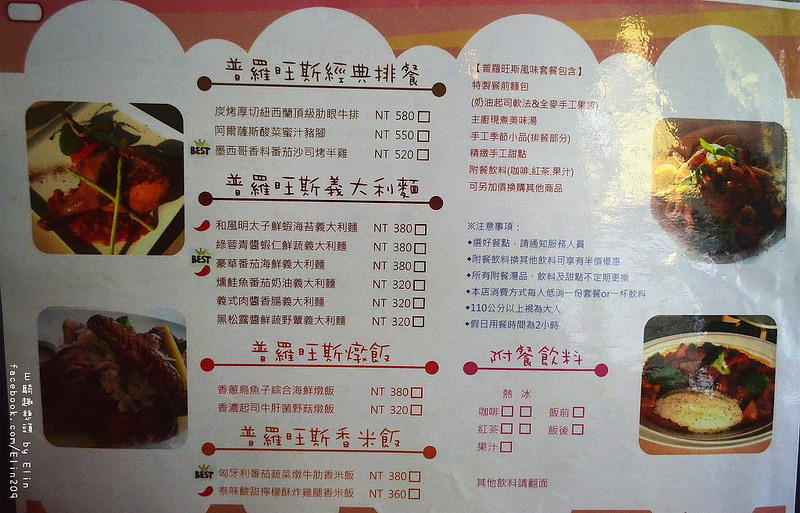 普羅旺斯經典排餐
炭烤厚切紐西蘭頂級肋眼牛排 NT 580
阿爾薩斯酸菜蜜汁豬腳 NT 550
BEST 墨西哥香料番茄沙司烤半雞 NT 520
普羅旺斯義大利麵
和風明太子鮮蝦海苔義大利麵 NT 380
綠蓉青醬蝦仁鮮蔬義大利麵 NT 380
BEST 豪華番茄海鮮義大利麵 NT 380
燻鮭魚番茄奶油義大利麵 NT 320
義式肉醬香腸義大利麵 NT 320
黑松露醬鮮蔬野蕈義大利麵 NT 320
普羅旺斯燉飯
香蔥烏魚子綜合海鮮燉飯 NT 380
香濃起司牛肝菌野菇燉飯 NT 320
普羅旺斯香米飯
BEST 匈牙利番茄蔬菜燉牛肋香米飯 NT 380
泰味酸甜檸檬酥炸雞腿香米飯 NT 360
【普羅旺斯風味套餐包含】
特製餐前麵包
(奶油起司軟法&全麥手工果醬)
主廚現煮美味湯
手工季節小品(排餐部分)
精緻手工甜點
附餐飲料(咖啡.紅茶.果汁)
可另加價換購其他商品
※注意事項：
◆選好餐點，請通知服務人員
◆附餐飲料換其他飲料可享有半價優惠
◆所有附餐湯品、飲料及甜點不定期更換
◆本店消費方式每人低消一份套餐or一杯飲料
◆110公分以上視為大人
◆假日用餐時間為2小時
附餐飲料
熱 冰
咖啡 飯前
紅茶 飯後
果汁
其他飲料請翻面
by Elin
facebook.com/Elin209